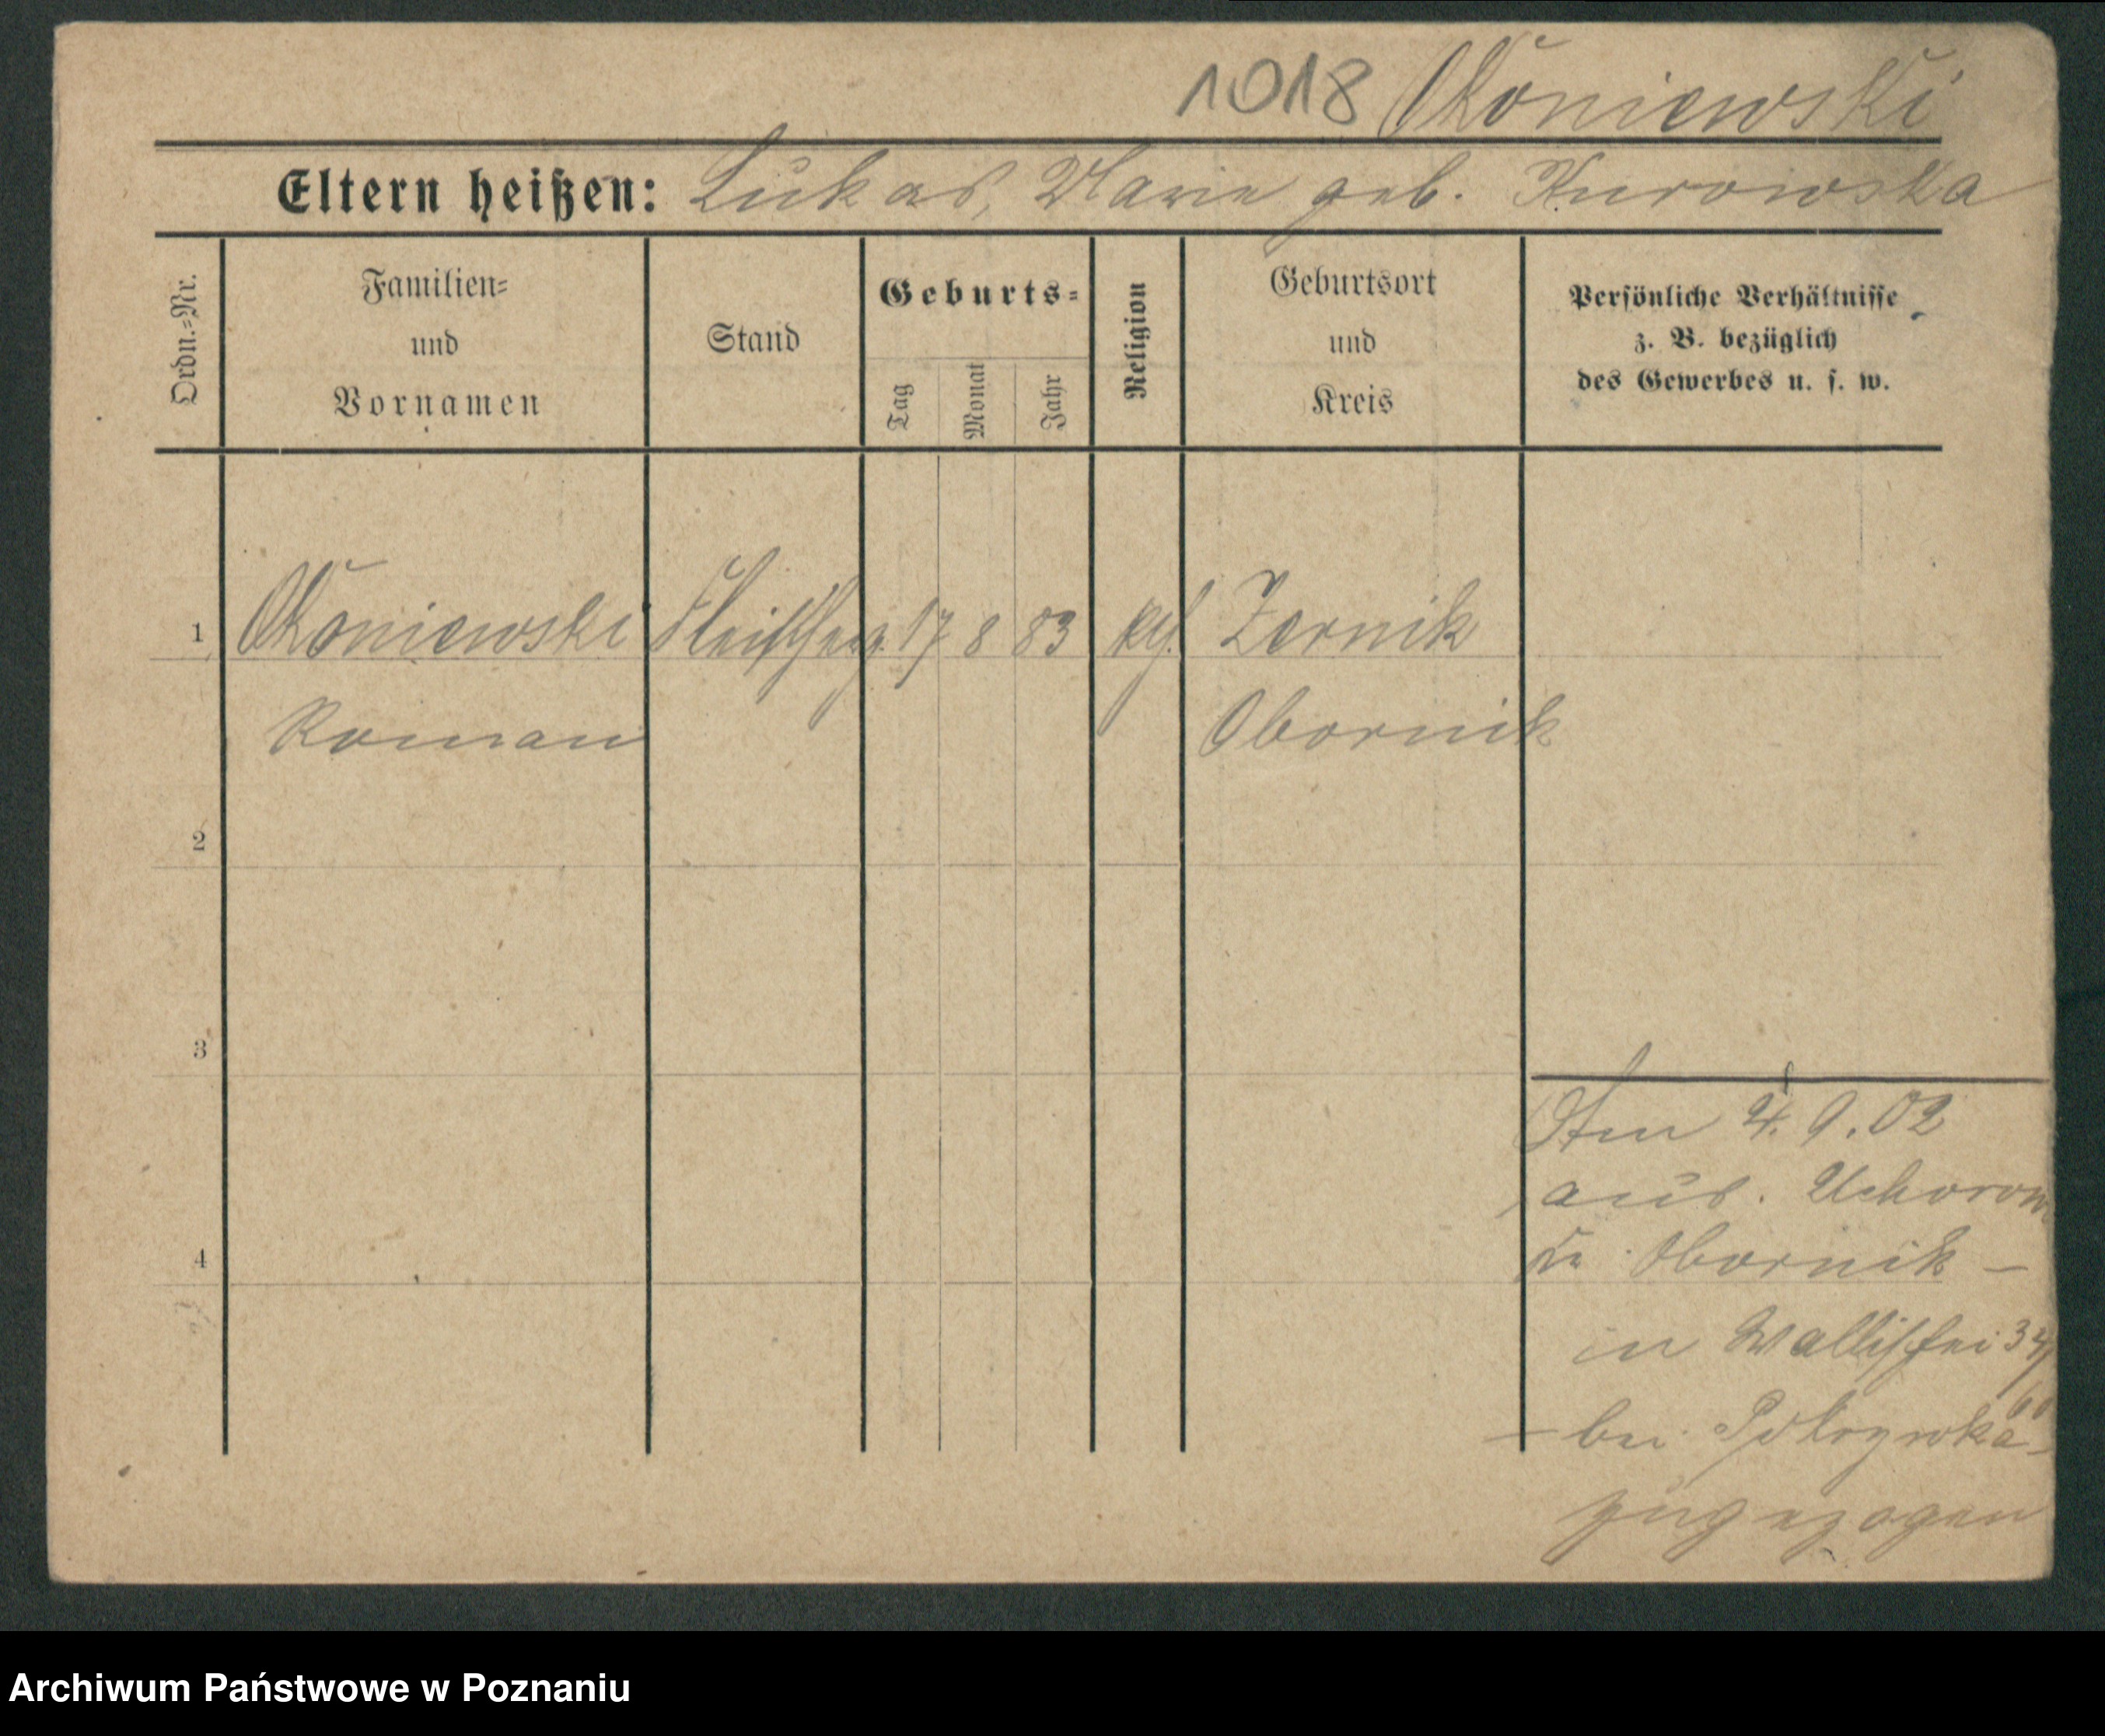 1018 Okoniewski
Eltern heißen: Lukas, Marie geb. Kurowska
Ordn.=Nr.
Familien=
und
Vornamen
Stand
Geburts=
Tag
Monat
Jahr
Religion
Geburtsort
und
Kreis
Persönliche Verhältnisse
z. B. bezüglich
des Gewerbes u. s. w.
1 Okoniewski 17 8 83 kth. Zernik
Roman Obornik
2
3
4
Am 4. 9. 02
aus. Uchorow
Obornik –
in Wallischei 34/
– bei
zugezogen
Archiwum Państwowe w Poznaniu